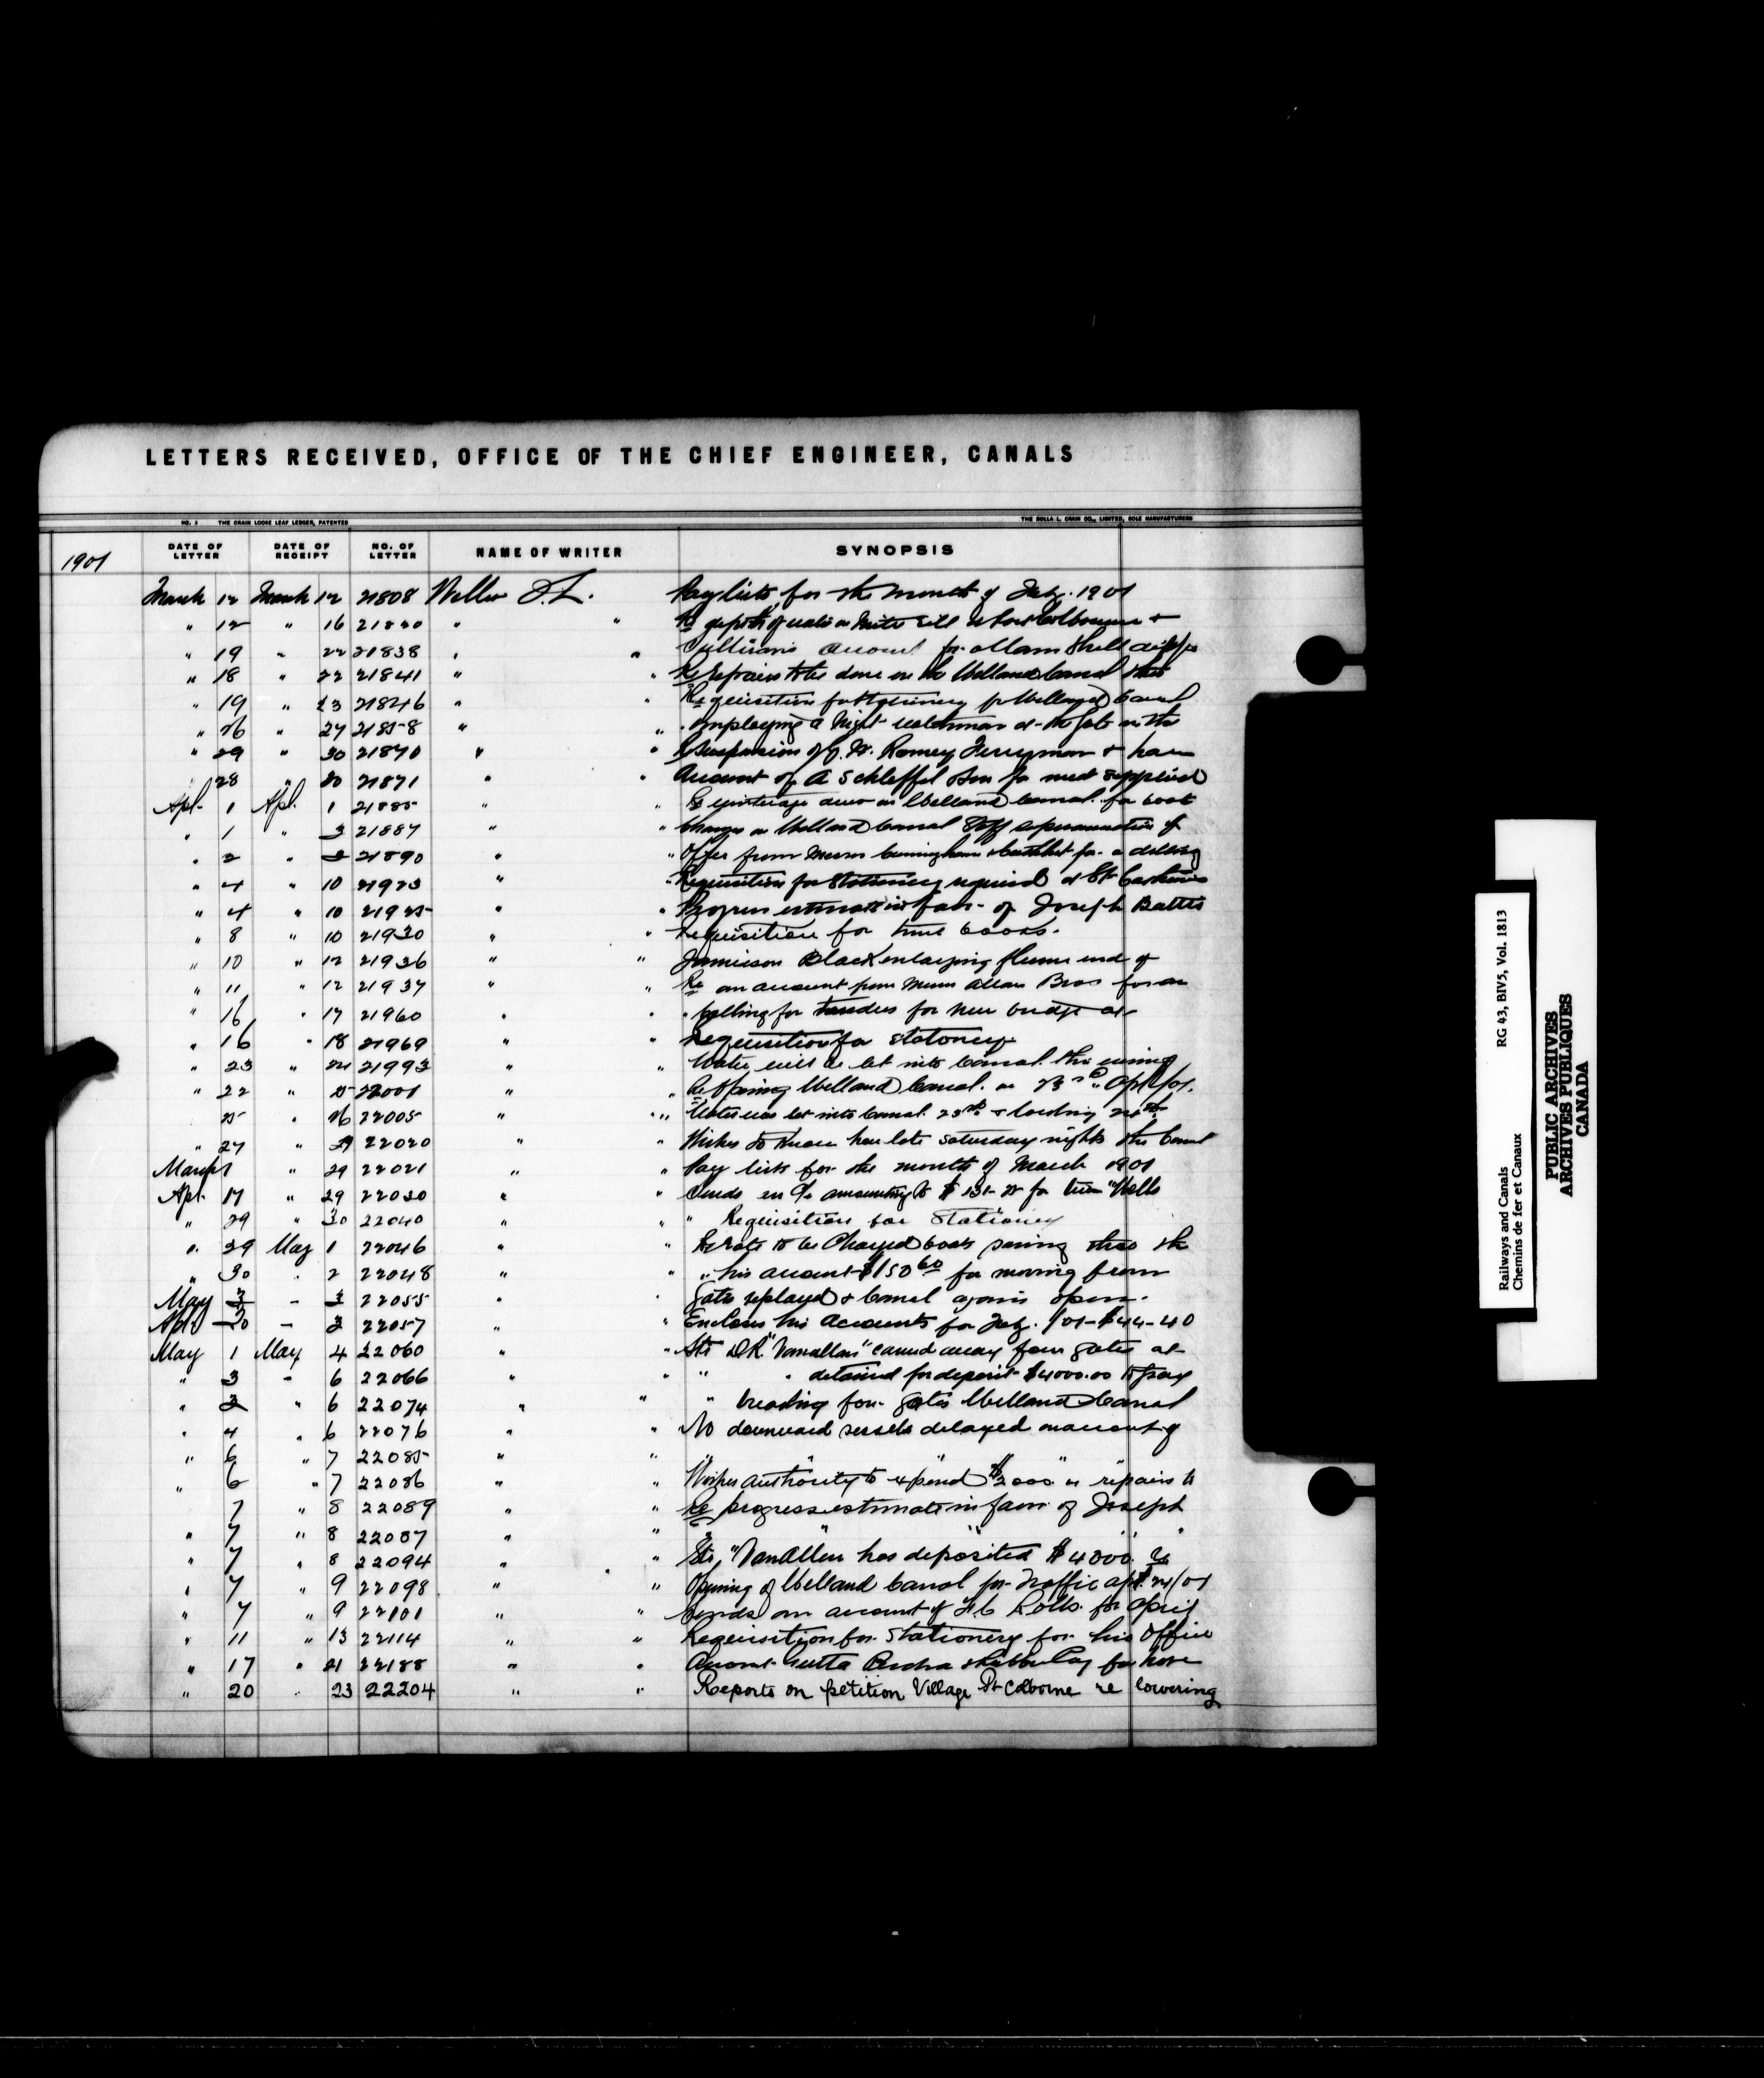 LETTERS RECEIVED, OFFICE OF THE CHIEF ENGINEER, CANALS
NO. 5 THE CRAIN LOOSE LEAF LEDGER, PATENTED THE ROLLA L. CRAIN CO., LIMITED, SOLE MANUFACTURERS
1901 DATE OF LETTER DATE OF RECEIPT NO. OF LETTER NAME OF WRITER SYNOPSIS
March 12 March 12 21808 Weller J.L. Pay lists for the month of Feby. 1901
" 12 " 16 21820 " " Re depth of water on mitre sill at Port Colbourne +
" 19 " 22 21838 " " account for
" 18 " 22 21841 " " Re repairs to be done on the Welland Canal this
" 19 " 23 21846 " " Requisition for stationery for Welland Canal
" 26 " 27 21858 " " " employing a night watchman at the gate on the
" 29 " 30 21870 " " Suspension of J. W. Ramey Ferryman +
28 " 30 21871 " " Account of A Schleffel Son for meat supplied
Apl. 1 Apl. 1 21885 " " Re on Welland Canal. for boat
" 1 " 3 21887 " " Changes on Welland Canal Staff superannuation of
" 2 " 3 21890 " " Offer from Messrs for a
" 4 " 10 21923 " " Requisition for Stationery required at St Catharines
" 4 " 10 21925 " " Progress estimate in favr of Joseph Battle
" 8 " 10 21930 " " Requisition for time books.
" 10 " 12 21936 " " Jamieson Black enlarging flume end of
" 11 " 12 21937 " " Re an account from Messrs Allan Bros for an
" 16 " 17 21960 " " " Calling for tenders for new bridge at
" 16 " 18 21969 " " Requisition for stationery.
" 23 " 24 21993 " " Water will be let into Canal this evening
" 22 " 25 22001 " " Re Opening Welland Canal. on 23rd Apl/01.
25 " 26 22005 " " Water was let into Canal 23rd +
" 27 " 29 22020 " " Wishes to know how late Saturday nights the Canal
March 1 " 29 22021 " " Pay lists for the month of March 1901
Apl. 17 " 29 22030 " " Sends an a/c amounting to for
" 29 " 30 22040 " " " Requisition for Stationery
" 29 May 1 22046 " " Re rate to be Charged boats passing thro the
" 30 " 2 22048 " " " his account $150 60 for moving from
May 3 - 3 22055 " " Gates replaced & Canal again open.
Apl. 30 - 3 22057 " " Encloses his Accounts for Feby. /01-$44-40
May 1 May 4 22060 " " Str D.R. "Vanallen" carried away four gates at
" 3 - 6 22066 " " " " detained for deposit $4000.00 to pay
" 3 " 6 22074 " " " breaking four gates Welland Canal
" 4 " 6 22076 " " No downward vessels delayed on account of
" 6 " 7 22085 " " " " "
" 6 " 7 22086 " " Wishes authority to expend $2000 on repairs to
7 " 8 22089 " " Re progress estimate in favr of Joseph
" 7 " 8 22087 " " " " " "
" 7 " 8 22094 " " Str. "VanAllen has deposited $4000.
" 7 " 9 22098 " " Opening of Welland Canal for Traffic Apl. 24/01
" 7 " 9 22101 " " Sends an account of for April
" 11 " 13 22114 " " Requisition for Stationery for his Office
" 17 " 21 22188 " " Account Gutta Percha & Rubber Coy for hose
" 20 " 23 22204 " " Reports on petition Village Pt Colborne re lowering
Railways and Canals RG 43, BIV5, Vol. 1813
Chemins de fer et Canaux
PUBLIC ARCHIVES
ARCHIVES PUBLIQUES
CANADA